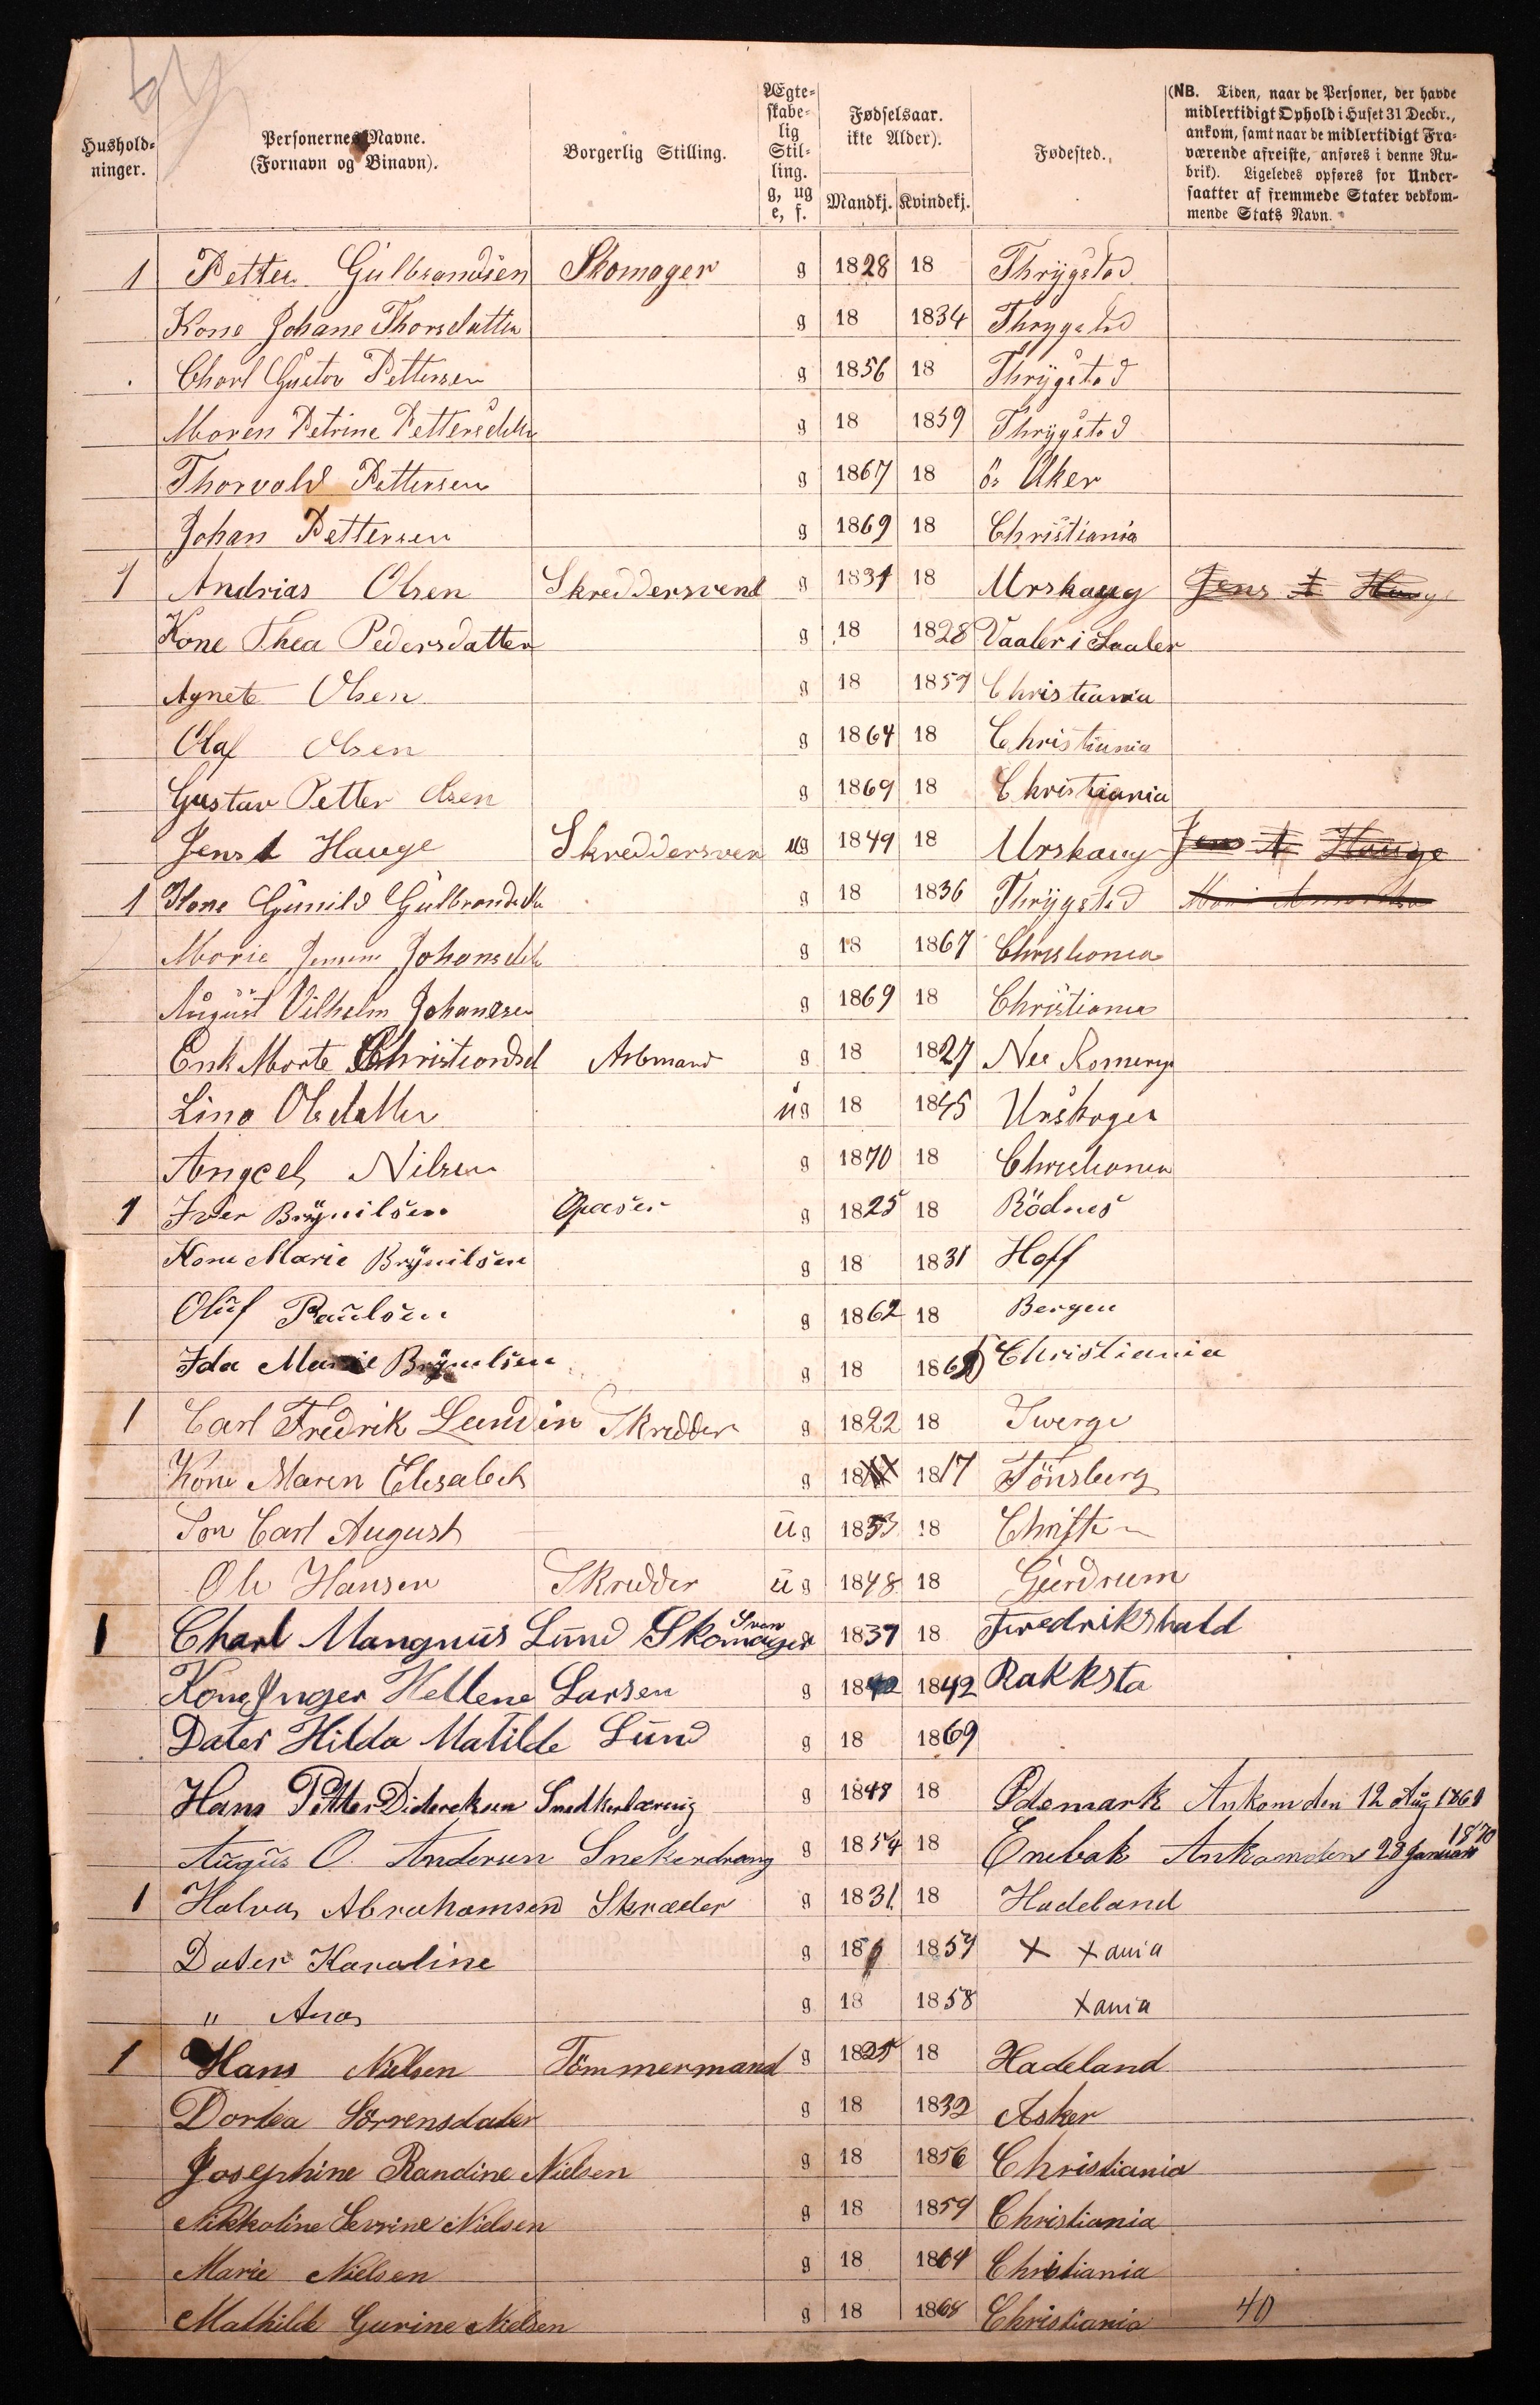 Hushold-
ninger.
Personernes Navne.
(Fornavn og Binavn).
Borgerlig Stilling.
Ægte-
skabe-
lig
Stil-
ling.
g, ug
e, f.
Fødselsaar.
ikke Alder).
Mandkj. Kvindekj.
Fødested.
(NB. Tiden, naar de Personer, der havde
midlertidigt Ophold i Huset 31 Decbr.,
ankom, samt naar de midlertidigt Fra-
værende afreiste, anføres i denne Ru-
brik). Ligeledes opføres for Under-
saatter af fremmede Stater vedkom-
mende Stats Navn.
1 Petter Gulbrandsen Skomager g 1828 18 Thrygstad
Kone Johane Thorsdatter g 18 1834 Thrygstad
Charl Gustav Pettersen g 1856 18 Thrygstad
Maren Petrine Pettersdtt g 18 1859 Thrygstad
Thorvald Pettersen g 1867 18 ö. Aker
Johan Pettersen g 1869 18 Christiania
1 Andrias Olsen Skreddersvend g 1831 18 Urskaug Jens A Hauge
Kone Thea Pedersdatter g 18 1828 Vaaler i Saaler
Agnete Olsen g 18 1857 Christiania
Olaf Olsen g 1864 18 Christiania
Gustav Petter Olsen g 1869 18 Christiania
Jens A Hauge Skreddersven ug 1849 18 Urskaug Jens A Hauge
1 Kone Gunild Gulbrandsdtt g 18 1836 Thrygstad
Marie Johansdtt g 18 1867 Christiania
August Vilhelm Johansen g 1869 18 Christiania
Enk Marte Christiansd Arbmand g 18 1827 Nee Romerige
Lina Olsdatter ug 18 1845 Urskogen
Angel Nilsen g 1870 18 Christiania
1 Iver Brynilsen Opaser g 1825 18 Rödnes
Kone Marie Brynilsen g 18 1831 Hoff
Oluf Paulsen g 1862 18 Bergen
Ida Marie Brynilsen g 18 1869 Christiania
1 Carl Fredrik Lundin Skredder g 1822 18 Swerge
Kone Maren Elisabeth g 18 1817 Tönsberg
Søn Carl August ug 1853 18 Christ
Ole Hansen Skredder ug 1848 18 Gjerdrum
1 Charl Mangnus Lund Skomager Sven g 1837 18 Fredrikshald
Kone Inger Hellene Larsen g 1842 1842 Rakksta
Dater Hilda Matilde Lund g 18 1869
Hans Petter Didereksen Snedkerlærnig g 1848 18 Ødemark Ankom den 12 Aug 1869
1870
Augus O. Andersen Snekerdræng g 1854 18 Enebak Ankom den 23 Januar
1 Halvor Abrahamsen Skræder g 1831 18 Hadeland
Dater Karoline g 18 1857 X Xania
" Ana g 18 1858 Xania
1 Hans Nielsen Tömmermand g 1825 18 Hadeland
Dortea Sörrensdater g 18 1832 Asker
Josephine Randine Nielsen g 18 1856 Christiania
Nikkoline Sevrine Nielsen g 18 1859 Christiania
Marie Nielsen g 18 1864 Christiania
Mathilde Gurine Nielsen g 18 1868 Christiania 40